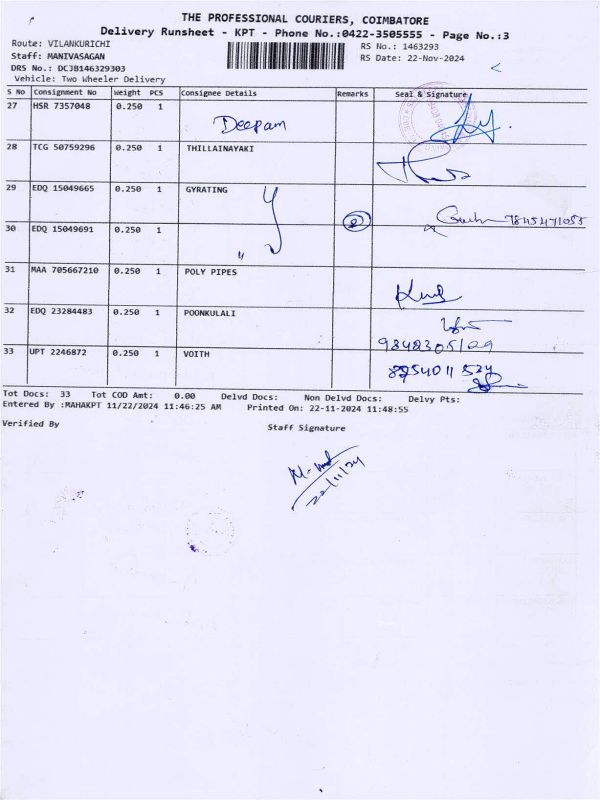 THE PROFESSIONAL COURIERS, COIMBATORE
Delivery Runsheet - KPT - Phone No.:0422-3505555 - Page No.:3
Route: VILANKURICHI
RS No.: 1463293
Staff: MANIVASAGAN
RS Date: 22-Nov-2024
DRS No.: DCJB146329303
Vehicle: Two Wheeler Delivery
S No Consignment No Weight PCS Consignee Details Remarks Seal & Signature
27 HSR 7357048 0.250 1 Deepam
28 TCG 50759296 0.250 1 THILLAINAYAKI
29 EDQ 15049665 0.250 1 GYRATING
7845471055
30 EDQ 15049691 0.250 1 "
31 MAA 705667210 0.250 1 POLY PIPES
32 EDQ 23284483 0.250 1 POONKULALI
9848305109
33 UPT 2246872 0.250 1 VOITH
Tot Docs: 33 Tot COD Amt: 0.00 Delvd Docs: Non Delvd Docs: Delvy Pts:
Entered By :MAHAKPT 11/22/2024 11:46:25 AM Printed On: 22-11-2024 11:48:55
Verified By
Staff Signature
22/11/24